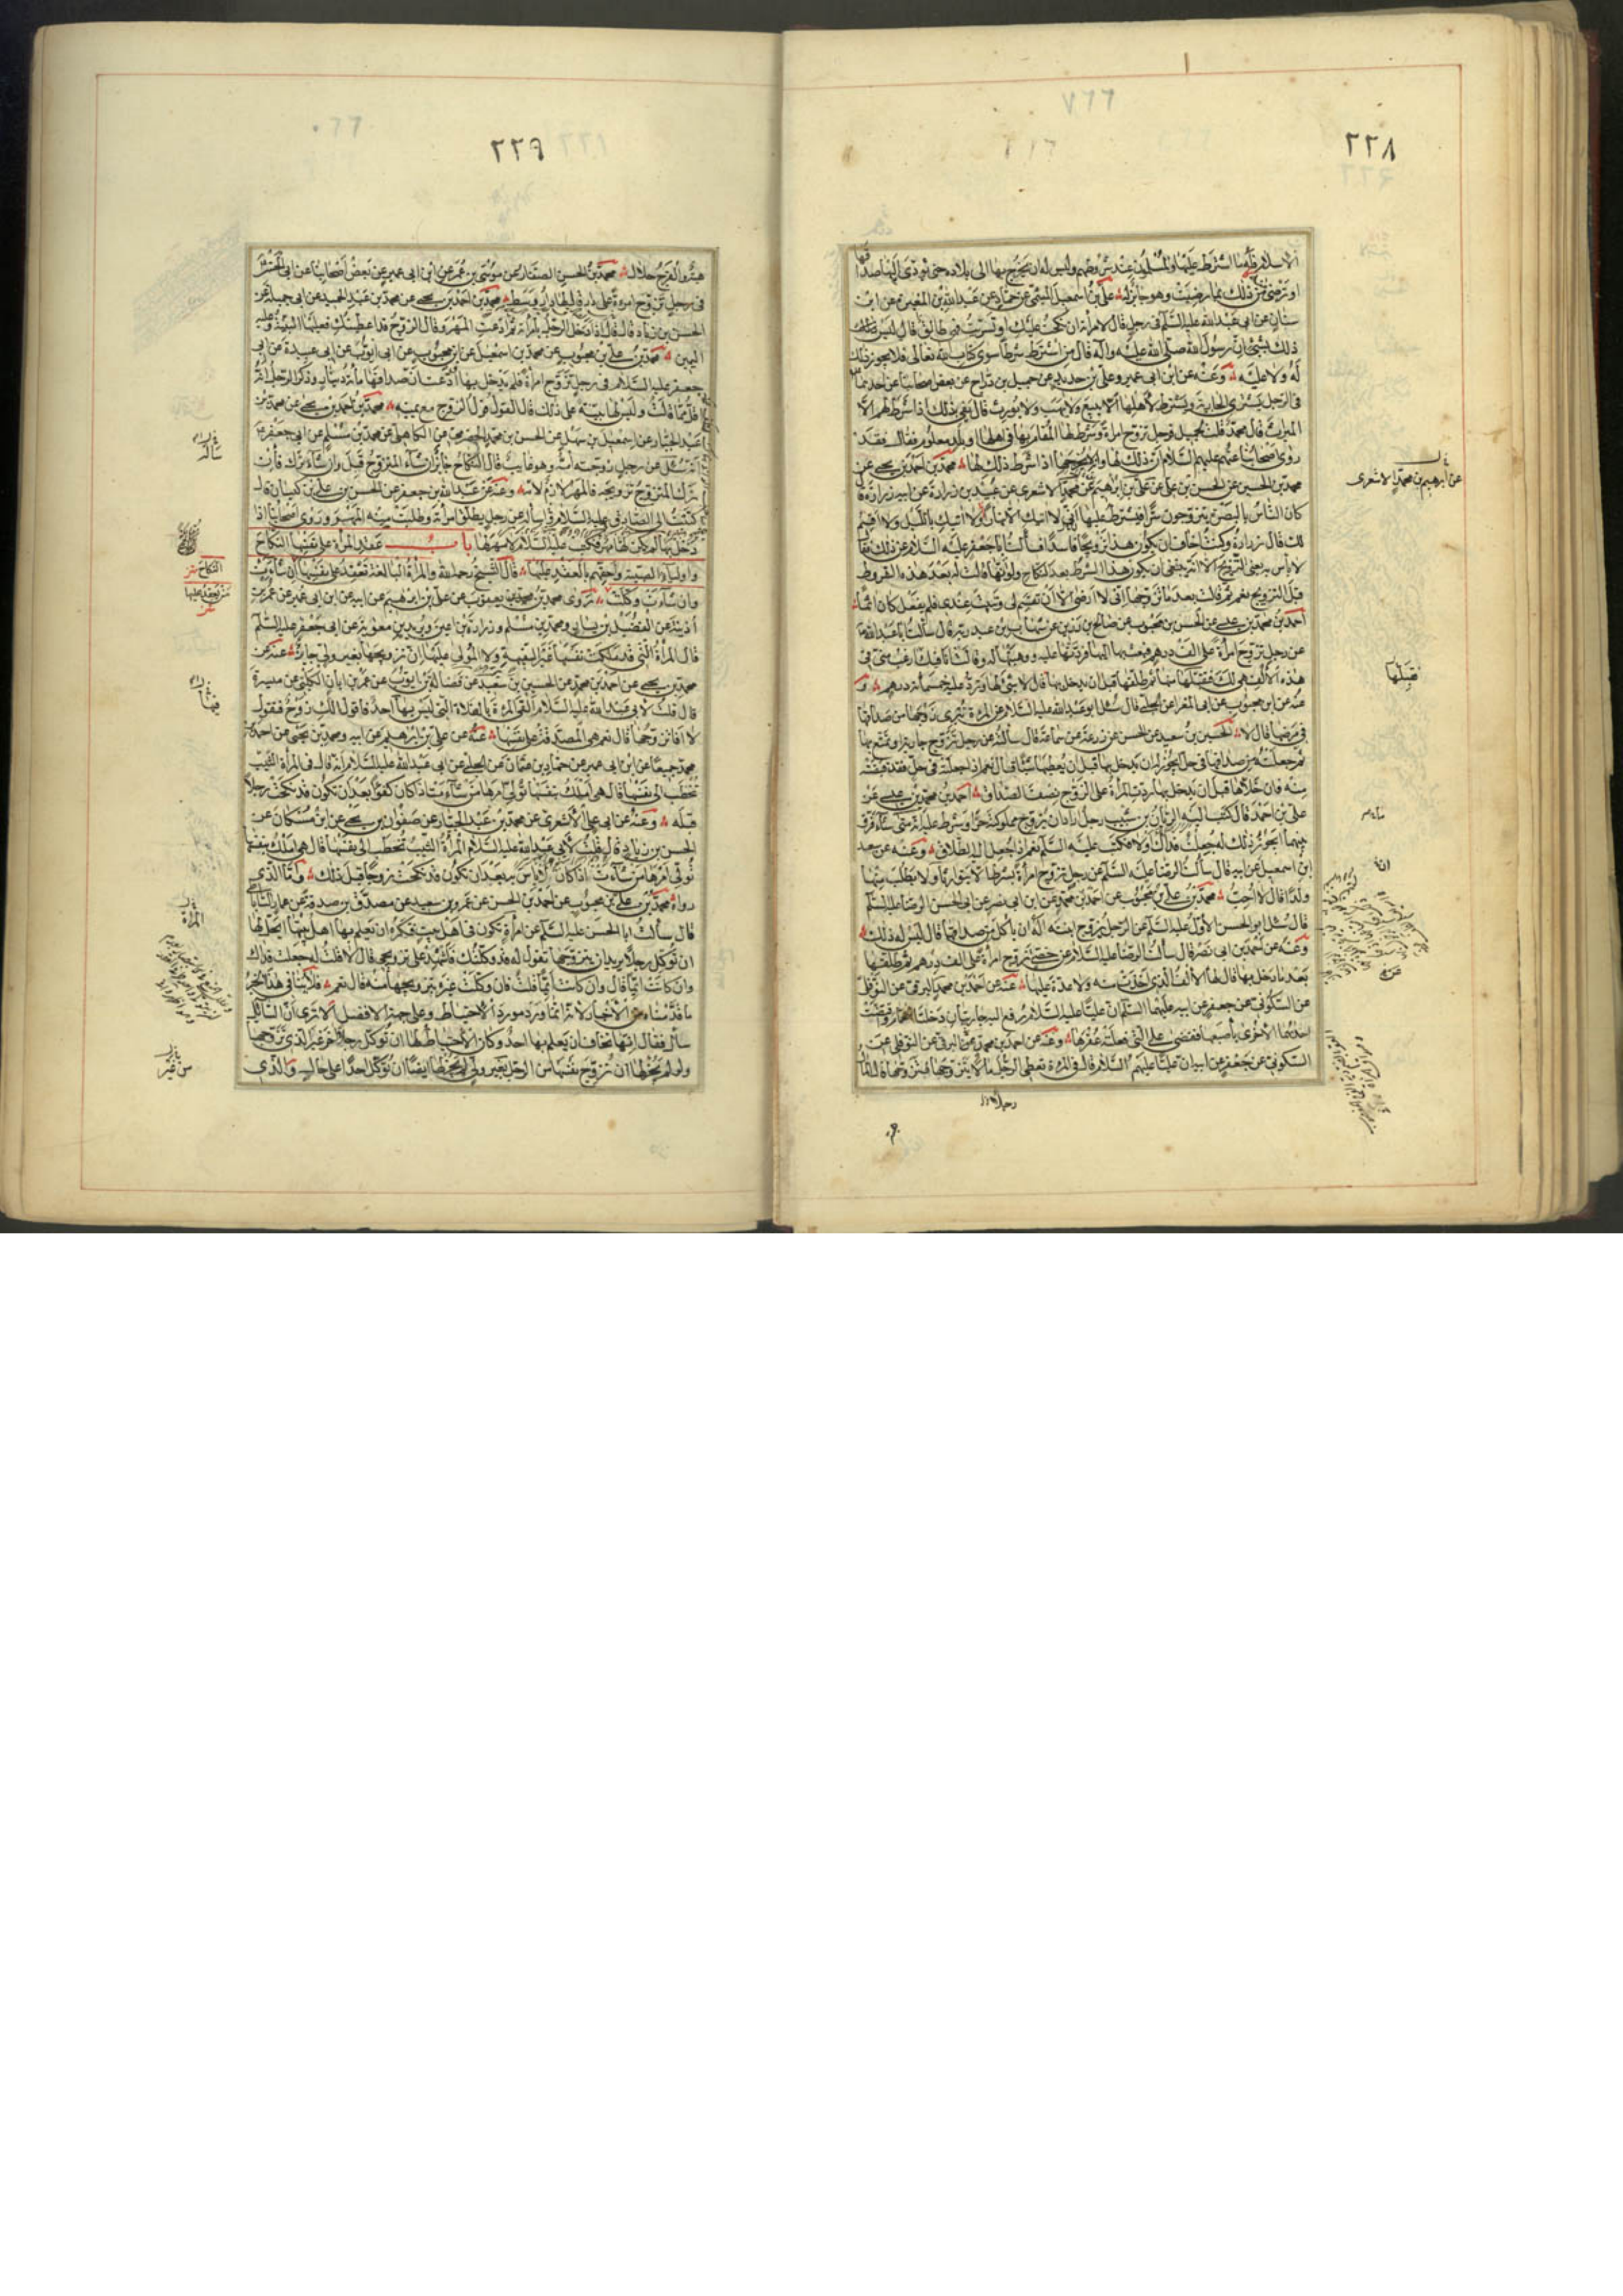 ٢٢٨
الاسلام فلها ما اشترط عليها والمسلمون عند شروطهم وليس له ان يخرج بها الى بلاده حتى يؤدى اليها صداقها
او ترضى من ذلك بما رضيت وهو جائز له علي بن اسمعيل الميثمى عن حماد عن عبد الله بن المغيرة عن ابن
سنان عن ابى عبد الله عليه السلم فى رجل قال لامرأته ان نكحت عليك او تسريت فهى طالق قال ليس
ذلك بشئ ان رسول الله صلى الله عليه وآله قال من اشترط شرطا سوى كتاب الله تعالى فلا يجوز ذلك
له ولا عليه وعنه عن ابن ابى عمير وعلى بن حديد عن جميل بن دراج عن بعض اصحابنا عن احدهما
فى الرجل يشترى الجارية ويشترط لاهلها الا يبيع ولا يهب ولا يورث قال يفى بذلك اذا شرط لهم الا
الميراث قال محمد قلت لجميل فرجل تزوج امرأة وشرط لها المقام بها فى اهلها او بلد معلوم فقال فقد
روى اصحابنا عنهم عليهم السلام ان ذلك لها وانه لا يخرجها اذا شرط ذلك لها محمد بن احمد بن يحيى عن
محمد بن الحسين عن الحسن بن على عن على بن ابرهيم عن محمد الاشعرى عن عبيد بن زرارة عن ابيه زرارة قال
كان الناس بالبصرة يتزوجون سرا فيشترط عليها انى لا اتيك الا نهارا ولا اتيك بالليل ولا اقيم
لك قال زرارة وكنت اخاف ان يكون هذا تزويجا فاسدا فسألت ابا جعفر عليه السلام عن ذلك فقال
لا باس به يعنى التزويج الا انه ينبغى ان يكون هذا الشرط بعد النكاح ولو انها قالت له بعد هذه الشروط
قبل التزويج نعم ثم قالت بعد ما تزوجها انى لا ارضى الا ان تقسم لى وتبيت عندى فلم يفعل كان اثما
احمد بن محمد بن عيسى عن الحسن بن محبوب عن صالح بن رزين عن شهاب بن عبد ربه قال سألت ابا عبد الله
عن رجل تزوج امرأة على الف درهم فبعث بها اليها فردتها عليه ووهبتها له وقالت انا فيك ارغب منى فى
هذه الالف هى لك فقبلها منها ثم طلقها قبل ان يدخل بها قال لا شئ لها وترد عليه خمسمأة درهم و
عنه عن ابن محبوب عن ابى المغرا عن الحلبى قال سئل ابو عبد الله عليه السلام عن المرءة تبرى زوجها من صداقها
فى مرضها قال لا الحسين بن سعيد عن الحسن عن زرعة عن سماعة قال سألته عن رجل تزوج جارية او تمتع بها
ثم جعلته من صداقها فى حل يجوز له ان يدخل بها قبل ان يعطيها شيئا قال نعم اذا جعلته فى حل فقد قبضته
منه فان خلاها قبل ان يدخل بها ردت المرأة على الزوج نصف الصداق احمد بن محمد بن عيسى عن
على بن احمد قال كتب اليه الريان بن شبيب رجل اراد ان يزوج مملوكته حرا وشرط عليه انه متى شاء فرق
بينهما ايجوز ذلك له جعلت فداك اولا فكتب عليه السلم نعم اذا جعل اليه الطلاق وعنه عن سعد
ابن اسمعيل عن ابيه قال سألت الرضا عليه السلم عن رجل تزوج امرأة بشرط ان لا يتوارثا ولا يطلب منها
ولدا قال لا احب محمد بن على بن محبوب عن احمد بن محمد عن ابن ابى نصر عن ابى الحسن الرضا عليه السلم
قال سئل ابو الحسن الاول عليه السلم عن الرجل يزوج ابنته اله ان ياكل من صداقها قال ليس له ذلك
وعنه عن احمد بن ابى نصر قال سألت الرضا عليه السلام عن خصى تزوج امرأة على الف درهم ثم طلقها
بعد ما دخل بها قال لها الالف الذى اخذت منه ولا عدة عليها عنه عن احمد بن محمد البرقى عن النوفلى
عن السكونى عن جعفر عن ابيه عليهما السلم ان عليا عليه السلام رفع اليه جاريتان دخلتا الحمام فاقتضت
احديهما الاخرى باصبعها فقضى على التى فعلت عقرها وعنه عن احمد بن محمد عن البرقى عن النوفلى عن
السكونى عن جعفر عن ابيه ان عليا عليهم السلام قال فى المرءة تعطى الرجل مالا يتزوجها فتزوجها قال المال
عن ابرهيم بن محمد الاشعرى
فقبلها
٢٢٩
هبة والفرج حلال محمد بن الحسن الصفار عن موسى بن عمر عن ابن ابى عمير عن بعض اصحابنا عن ابى الحسن
فى رجل تزوج امرأة على دار قال لها دار وسط محمد بن احمد بن يحيى عن محمد بن عبد الحميد عن ابى جميلة عن
الحسن بن زياد قال قال اذا دخل الرجل بامرأته ثم ادعت المهر وقال الزوج قد اعطيتك فعليها البينة وعليه
اليمين محمد بن على بن محبوب عن محمد بن اسمعيل عن ابن محبوب عن ابى ايوب عن ابى عبيدة عن ابى
جعفر عليه السلام فى رجل تزوج امرأة فلم يدخل بها فادعت ان صداقها مأة دينار وذكر الرجل انه
اقل مما قالت وليس لها بينة على ذلك قال القول قول الزوج مع يمينه محمد بن احمد بن يحيى عن محمد بن
عبد الجبار عن اسمعيل بن سهل عن الحسن بن محمد الحضرمى عن الكاهلى عن محمد بن مسلم عن ابى جعفر
انه سئل عن رجل زوجته امه وهو غايب قال النكاح جايز ان شاء المتزوج قبل وان شاء ترك فان
ترك المتزوج تزويجه فالمهر لازم لامه وعنه عن عبد الله بن جعفر عن الحسن بن على بن كيسان قال
كتبت الى الصادق عليه السلام اساله عن رجل يطلق امرأته وطلبت منه المهر وروى اصحابنا اذا
دخل بها لم يكن لها مهر فكتب عليه السلام لا مهر لها باب عقد المرأة على نفسها النكاح
واولياء الصبية واحقهم بالعقد عليها قال الشيخ رحمه الله والمرأة البالغة تعقد على نفسها ان شاءت
وان شاءت وكلت روى محمد بن يعقوب عن على بن ابرهيم عن ابيه عن ابن ابى عمير عن عمر بن
اذينة عن الفضيل بن يسار ومحمد بن مسلم وزرارة بن اعين وبريد بن معوية عن ابى جعفر عليه السلم
قال المرأة التى قد ملكت نفسها غير السفيهة ولا المولى عليها ان تزويجها بغير ولى جايز عنه عن
محمد بن يحيى عن احمد بن محمد عن الحسين بن سعيد عن فضالة بن ايوب عن عمر بن ابان الكلبى عن ميسرة
قال قلت لابى عبد الله عليه السلام القى المرءة بالفلاة التى ليس بها احد فاقول لك زوج فتقول
لا فاتزوجها قال نعم هى المصدقة على نفسها عنه عن على بن ابرهيم عن ابيه ومحمد بن يحيى عن احمد بن
محمد جميعا عن ابن ابى عمير عن حماد بن عثمان عن الحلبى عن ابى عبد الله عليه السلام انه قال فى المرأة الثيب
تخطب الى نفسها قال هى املك بنفسها تولى امرها من شاءت اذا كان كفوا بعد ان تكون قد نكحت رجلا
قبله وعنه عن ابى على الاشعرى عن محمد بن عبد الجبار عن صفوان بن يحيى عن ابن مسكان عن
الحسن بن زياد قال قلت لابى عبد الله عليه السلام المرأة الثيب تخطب الى نفسها قال هى املك بنفسها
تولى امرها من شاءت اذا كان لا باس به بعد ان تكون قد نكحت زوجا قبل ذلك واما الذى
رواه محمد بن على بن محبوب عن احمد بن الحسن عن عمرو بن سعيد عن مصدق بن صدقة عن عمار الساباطى
قال سألت ابا الحسن عليه السلم عن امرأة تكون فى اهل بيت فتكره ان تعلم بها اهل بيتها ايحل لها
ان توكل رجلا يريد ان يتزوجها تقول له قد وكلتك فاشهد على تزويجى قال لا قلت له جعلت فداك
وان كانت ايما قال وان كانت ايما قلت فان وكلت غيره بتزويجها منه قال نعم فلا ينافى هذا الخبر
ما قدمناه من الاخبار لانه انما ورد مورد الاحتياط وعلى جهة الافضل الا ترى ان السائل
سأل فقال انها تخاف ان يعلم بها احد وكان الاحتياط لها ان توكل رجلا آخر غير الذى تزوجها
ولو لم يجز لها ان تزوج نفسها من الرجل بغير ولى لم يجز لها ايضا ان توكل احدا على حال والذى
النكاح
المرأة
من غير